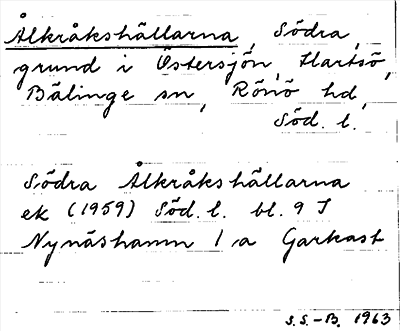 Ålkråkshällarna, Södra,
grund i Östersjön, Hartsö,
Bälinge sn, Rönö hd,
Söd. l.
Södra Ålkråkshällarna
ek (1959) Söd. l. bl. 9 I
Nynäshamn 1 a Garkast
S.S.-B. 1963